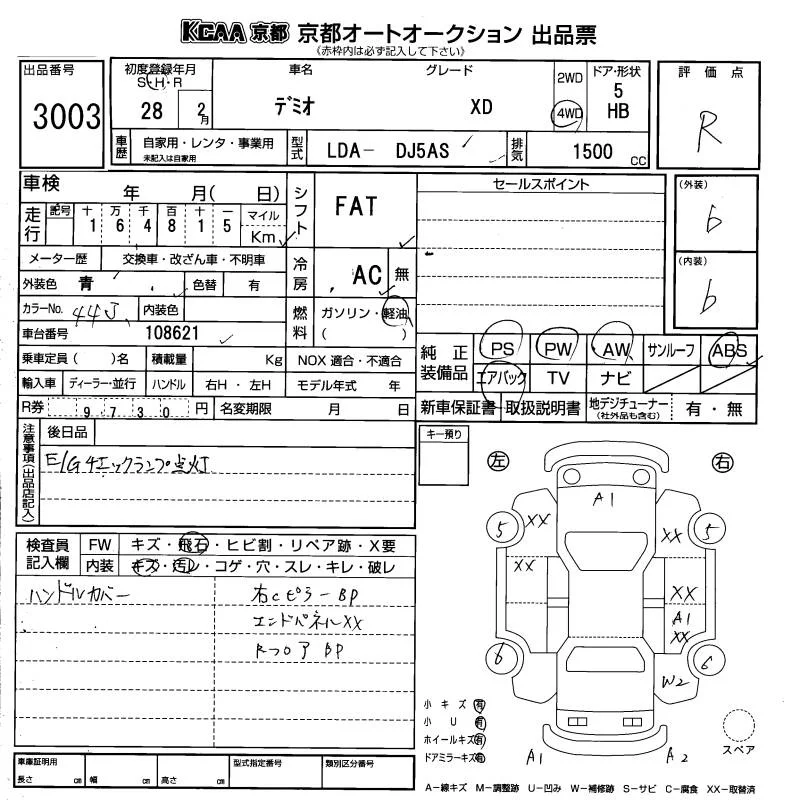 KCAA 京都 京都オートオークション 出品票
《赤枠内は必ず記入して下さい》
出品番号
3003
初度登録年月
S・H・R
28 2月
車名 グレード
デミオ XD
2WD
4WD
ドア・形状
5
HB
評価点
R
車歴
自家用・レンタ・事業用
未記入は自家用
型式
LDA- DJ5AS
排気
1500 CC
車検 年 月( 日)
シフト
FAT
セールスポイント
(外装)
6
(内装)
6
走行
記号 十 万 千 百 十 一
1 6 4 8 1 5
マイル
Km
メーター歴 交換車・改ざん車・不明車
冷房
AC 無
外装色 青 色替 有
カラーNo. 44J 内装色
燃料
ガソリン・軽油
( )
車台番号 108621
乗車定員( )名 積載量 Kg NOX 適合・不適合
輸入車 ディーラー・並行 ハンドル 右H・左H モデル年式 年
R券 9730円 名変期限 月 日
純正装備品
PS PW AW サンルーフ ABS
エアバック TV ナビ
新車保証書 取扱説明書 地デジチューナー(社外品も含む) 有・無
注意事項(出品店記入)
後日品
E/Gチェックランプ点灯
キー預り
左 右
検査員記入欄
FW キズ・飛石・ヒビ割・リペア跡・X要
内装 キズ・汚レ・コゲ・穴・スレ・キレ・破レ
ハンドルカバー
右CピラーBP
エンドパネルXX
RフロアBP
A1
XX
XX
5
5
XX
XX
A1
XX
6
6
W2
A1
A2
小キズ 有
小U 有
ホイールキズ 有
ドアミラーキズ 有
スペア
車庫証明用
長さ cm 幅 cm 高さ cm
型式指定番号
類別区分番号
A-線キズ M-調整跡 U-凹み W-補修跡 S-サビ C-腐食 XX-取替済